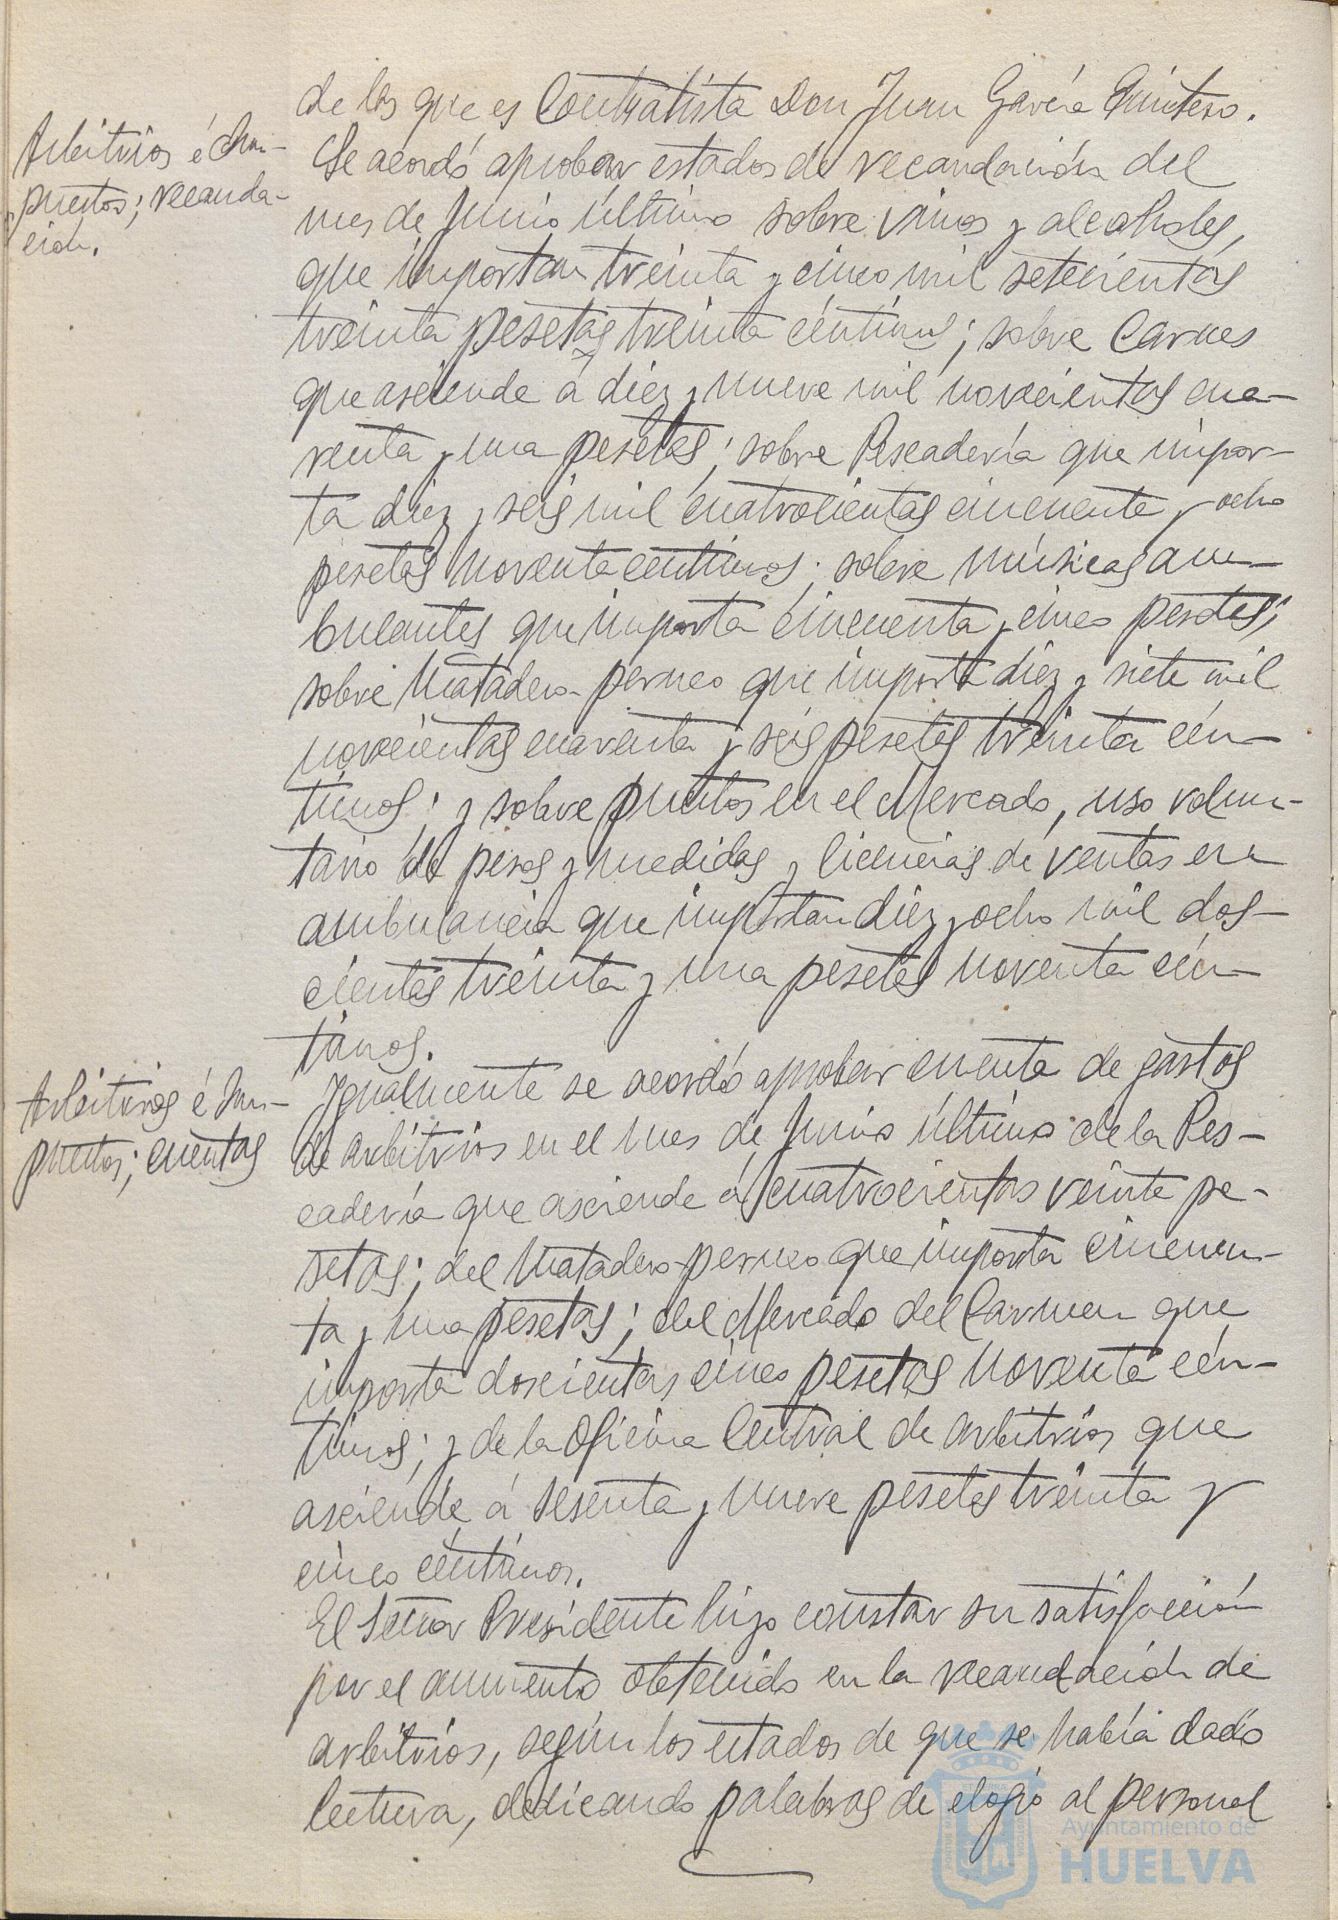 de los que es Contratista Don Juan García Quintero.
Arbitrios é Im-
puestos; recauda-
ción.
Se acordó aprobar estados de recaudación del
mes de Junio último sobre vinos y alcoholes,
que importan treinta y cinco mil setecientas
treinta pesetas treinta céntimos; sobre Carnes
que asciende á diez y nueve mil novecientas cua-
renta y una pesetas; sobre Pescadería que impor-
ta diez y seis mil cuatrocientas cincuenta y ocho
pesetas noventa céntimos; sobre músicas am-
bulantes que importa cincuenta y cinco pesetas;
sobre Matadero-perneo que importa diez y siete mil
novecientas cuarenta y seis pesetas treinta cén-
timos; y sobre puestos en el Mercado, uso volun-
tario de pesas y medidas y licencias de ventas en
ambulancia que importan diez y ocho mil dos-
cientas treinta y una pesetas noventa cén-
timos.
Arbitrios é Im-
puestos; cuentas
Igualmente se acordó aprobar cuenta de gastos
de arbitrios en el mes de Junio último de la Pes-
cadería que asciende á cuatrocientas veinte pe-
setas; del Matadero-perneo que importa cincuen-
ta y una pesetas; del Mercado del Carmen que
importa doscientas cinco pesetas noventa cén-
timos; y de la Oficina Central de arbitrios que
asciende á sesenta y nueve pesetas treinta y
cinco céntimos.
El Señor Presidente hizo constar su satisfacción
por el aumento obtenido en la recaudación de
arbitrios, según los estados de que se había dado
lectura, dedicando palabras de elogio al personal
Ayuntamiento de
HUELVA